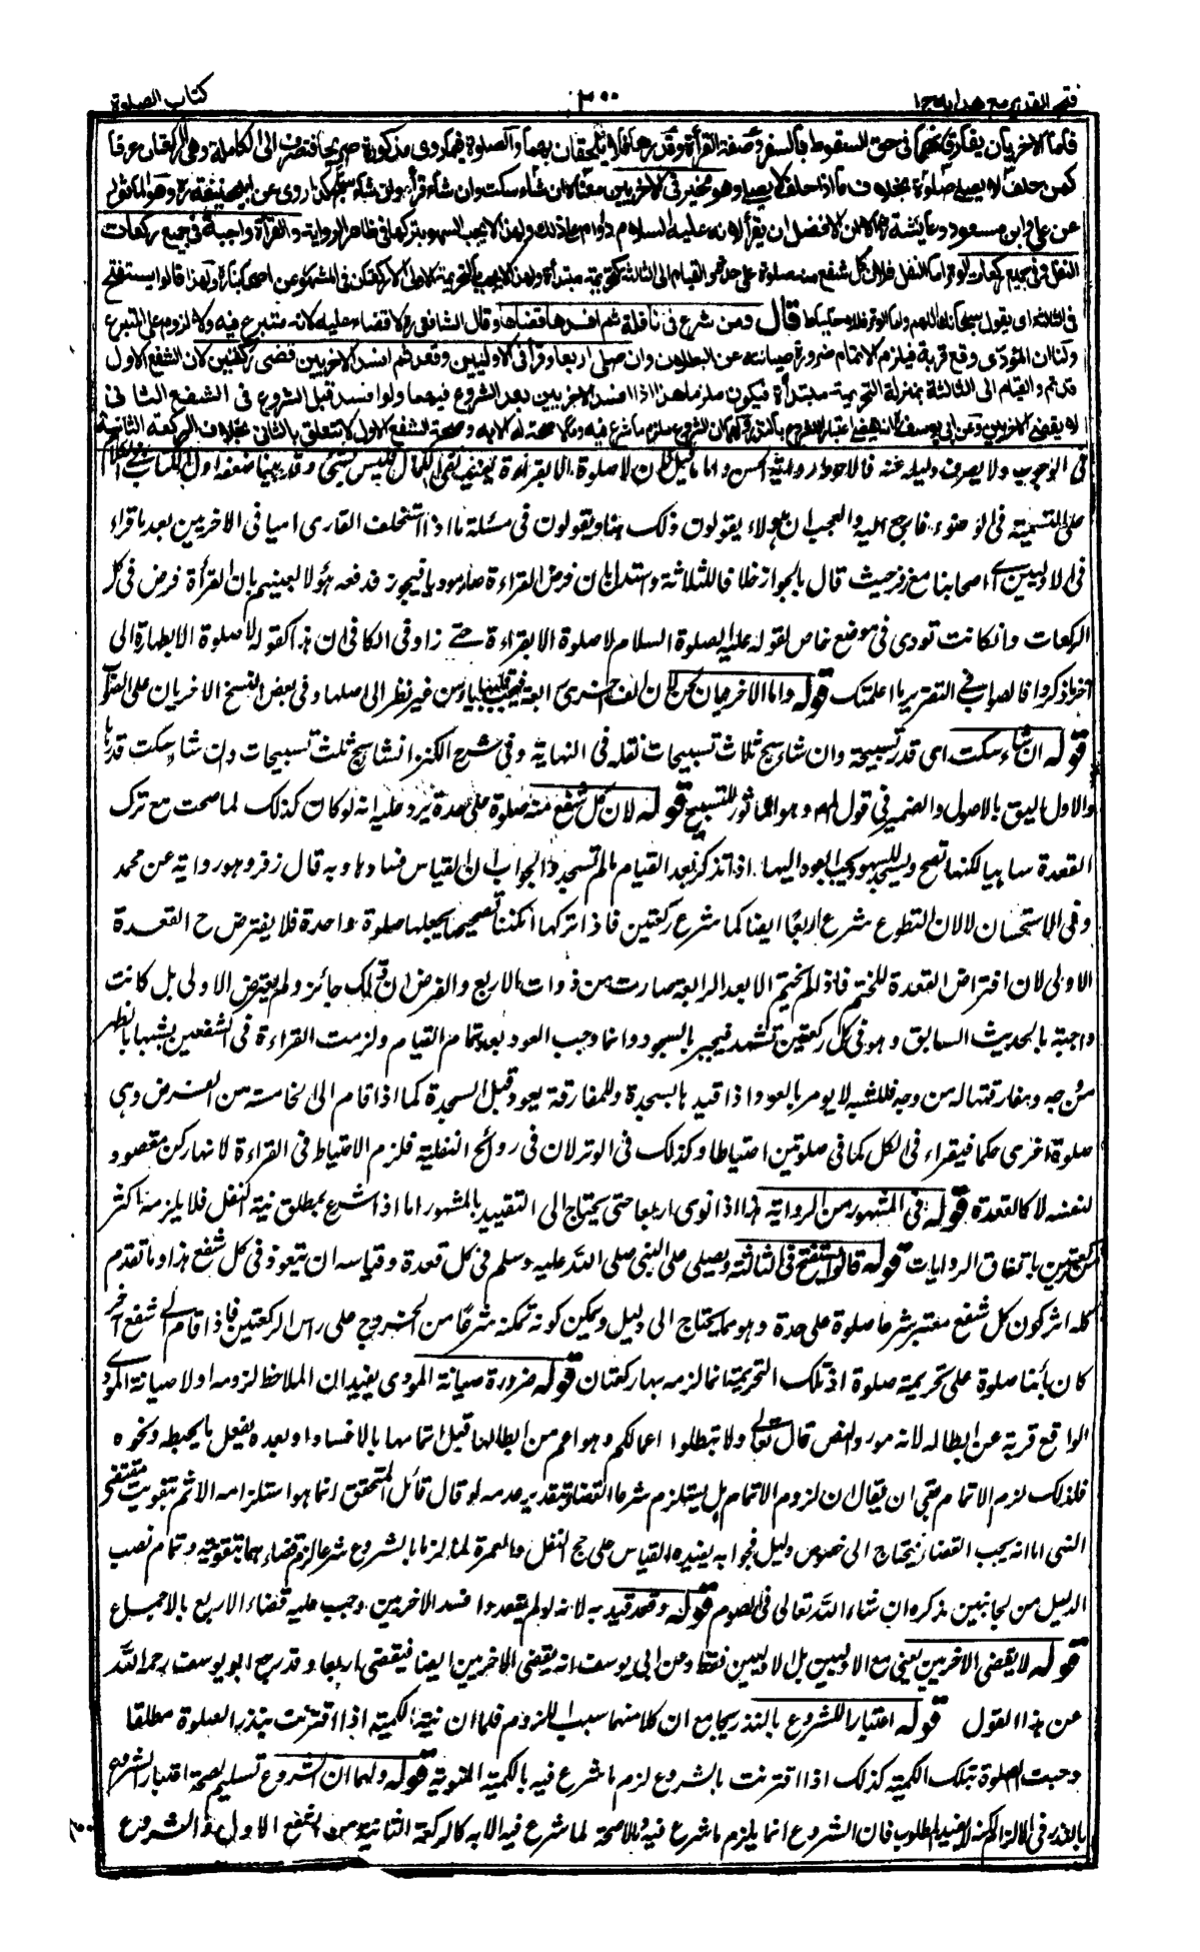 فتح القدير مع هدايه ج ١
٣٠٠
كتاب الصلوة
فاما الاخريان يفارقانهما فى حق السقوط بالسفر وصفة القرأة وقدرها فلا يلحقان بهما والصلوة فيما روى مذكورة صريحا فتنصرف الى الكاملة وهى الركعتان عرفا
كمن حلف لا يصلى صلوة بخلاف ما اذا حلف لا يصلى وهو مخير فى الاخريين معناه ان شاء سكت وان شاء قرأ وان شاء سبح كذا روى عن ابى حنيفة رح وهو الماثور
عن على وابن مسعود وعايشة رض الا ان الافضل ان يقرأ لانه عليه السلام داوم على ذلك ولهذا لا يجب السهو بتركها فى ظاهر الرواية والقرأة واجبة فى جميع ركعات
النفل وفى جميع ركعات الوتر اما النفل فلان كل شفع منه صلوة على حدة والقيام الى الثالثة كتحريمة مبتدأة ولهذا لا يجب بالتحريمة الاولى الا ركعتان فى المشهور عن اصحابنا رح ولهذا قالوا يستفتح
فى الثالثة اى يقول سبحانك اللهم واما الوتر فللاحتياط قال ومن شرع فى نافلة ثم افسدها قضاها وقال الشافعى رح لا قضاء عليه لانه متبرع فيه ولا لزوم على المتبرع
ولنا ان المؤدى وقع قربة فيلزم الاتمام ضرورة صيانته عن البطلان وان صلى اربعا وقرأ فى الاوليين وقعد ثم افسد الاخريين قضى ركعتين لان الشفع الاول
قد تم والقيام الى الثالثة بمنزلة التحريمة مبتدأة فيكون ملزما هذا اذا افسد الاخريين بعد الشروع فيهما ولو افسد قبل الشروع فى الشفع الثانى
لا يقضى الاخريين وعن ابى يوسف رح انه يقضى اعتبارا للشروع بالنذر ولهما ان الشروع ملزم ما شرع فيه وما لا صحة له الا به وصحة الشفع الاول لا تتعلق بالثانى بخلاف الركعة الثانية
فى الوجوب ولا يصرف دليله عنه فالاحوط رواية الحسن واما ما قيل ان لا صلوة الا بقراءة يفيد نفى الكمال فليس بشئ وقد بينا ضعفه اول الكتاب فى الكلام
على التسمية فى الوضوء فارجع اليه والعجب ان هؤلاء يقولون ذلك هنا ويقولون فى مسئلة ما اذا استخلف القارى اميا فى الاخريين بعد ما قراء
فى الاوليين اصحابنا مع زفر حيث قال بالجواز خلافا للثلاثة واستدل بان فرض القراءة صار مودياً فيجوز فدفعه هؤلاء بعينهم بان القرأة فرض فى كل
الركعات وان كانت تودى فى موضع خاص لقوله عليه الصلوة السلام لا صلوة الا بقراءة حتى زاد فى الكافى ان هذا كقوله لا صلوة الا بطهارة الى
آخر ما ذكروا فالصواب فى التقرير ما اعلمتك قوله واما الاخريان بحتمل ان الف اخرى رابعة فيجب قلبها ياء من غير نظر الى اصلها وفى بعض النسخ الاخريان على الصواب
قوله ان شاء سكت اى قدر تسبيحة وان شاء سبح ثلاث تسبيحات نقله فى النهاية وفى شرح الكنز ان شاء سبح ثلث تسبيحات وان شاء سكت قدرها
والاول اليق بالاصول والضمير فى قول المصـ وهو الماثور للتسبيح قوله لان كل شفع منه صلوة على حدة يرد عليه انه لو كان كذلك لما صحت مع ترك
القعدة ساهيا لكنها تصح وليسجد للسهو ويجب العود اليها اذا تذكر بعد القيام ما لم تسجد والجواب ان القياس فسادها وبه قال زفر وهو رواية عن محمد
وفى الاستحسان لا لان التطوع شرع اربعًا ايضا كما شرع ركعتين فاذا تركها امكننا تصحيحها بجعلها صلوة واحدة فلا يفترض ح القعدة
الاولى لان افتراض القعدة للختم فاذا لم يختم الا بعد الرابعة صارت من ذوات الاربع والفرض ان ذلك جائز ولم يفترض الاولى بل كانت
واجبة بالحديث السابق وهو فى كل ركعتين تشهد فيجبر بالسجود وانما وجب العود بعد تمام القيام ولزمت القراءة فى الشفعين بشبهها بالظهر
من وجه ومفارقتها له من وجه فللشبه لا يومر بالعود اذا قيد بالسجدة وللمفارقة يعود قبل السجدة كما اذا قام الى الخامسة من الفرض وهى
صلوة اخرى حكما فيقراء فى الكل كما فى صلوتين احتياطا وكذلك فى الوتر لان فى روائح النفلية فلزم الاحتياط فى القراءة لانها ركن مقصود
لنفسه لا كالقعدة قوله فى المشهور من الرواية هذا اذا نوى اربعا حتى يحتاج الى التقييد بالمشهور اما اذا شرع بمطلق نية النفل فلا يلزمه اكثر
من ركعتين باتفاق الروايات قوله قالوا يستفتح فى الثالثة ويصلى على النبى صلى الله عليه وسلم فى كل قعدة وقياسه ان يتعوذ فى كل شفع هذا وما تقدم
كله اثر كون كل شفع معتبر شرعا صلوة على حدة وهو مما يحتاج الى دليل ويمكن كونه تمكنه شرعًا من الخروج على راس الركعتين فاذا قام الى شفع اخر
كان بانيا صلوة على تحريمة صلوة اذ تلك التحريمة انما لزمه بها ركعتان قوله ضرورة صيانة المودى يفيد ان الملاحظ لزومه اولا صيانة المودى
الواقع قربة عن ابطاله لانه مورد النص قال تعالى ولا تبطلوا اعمالكم وهو اعم من ابطالها قبل اتمامها بالافساد او بعده بفعل ما يحبطه ونحوه
فلذلك لزم الاتمام بقى ان يقال ان لزوم الاتمام بل يستلزم شرعا القضاء بتقدير عدمه لو قال قائل المتحقق انما هو استلزامه الاثم بتفويت مقتضى
النهى اما انه يجب القضاء فيحتاج الى خصوص دليل فجوابه يفيده القياس على حج النفل والعمرة لما لزما بالشروع شرعا لزم قضاءهما بتفويته وتمام نصب
الدليل من الجانبين نذكره ان شاء الله تعالى فى الصوم قوله وقعد قيد به لانه لو لم يقعد وافسد الاخريين وجب عليه قضاء الاربع بالاجماع
قوله لا يقضى الاخريين يعنى مع الاوليين بل الاوليين فقط وعن ابى يوسف انه يقضى الاخريين ايضا فيقضى اربعا وقد رجع ابو يوسف رحمه الله
عن هذا القول قوله اعتبارا للشروع بالنذر بجامع ان كلا منهما سبب اللزوم فلما ان نية الكمية اذا اقترنت بنذر الصلوة مطلقا
وجبت الصلوة بتلك الكمية كذلك اذا اقترنت بالشروع لزم ما شرع فيه بالكمية المنوية قوله ولهما ان الشروع تسليم لصحة اعتبار الشروع
بالنذر فى الالزام لكنه لا يفيد المطلوب فان الشروع انما يلزم ما شرع فيه وما لا صحة لما شرع فيه الا به كالركعة الثانية من الشفع الاول والشروع